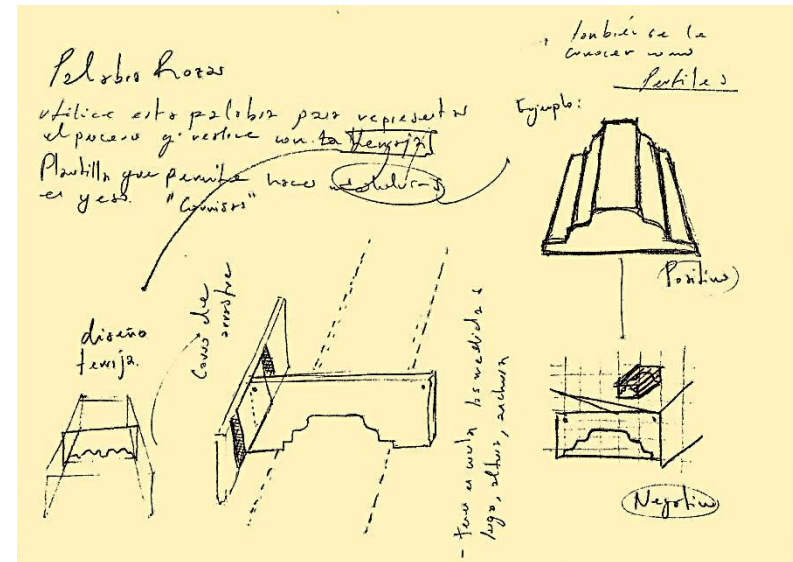 Palabra Rozas
utilice esta palabra para representar
el proceso q' realice con la terraja
Plantilla que permite hacer molduras
en yeso. "Cornisas"
también se le
conocer como
Perfiles
Ejemplo:
(Positivo)
diseño
terraja.
Carro de
arrastre
- tener en cuenta las medidas
largo, altura, anchura
Negativo